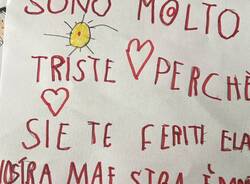 SONO M@LTO
TRISTE PERCHÈ
SIE TE FERITI E LA
NOSTRA MAE STRA È MOR